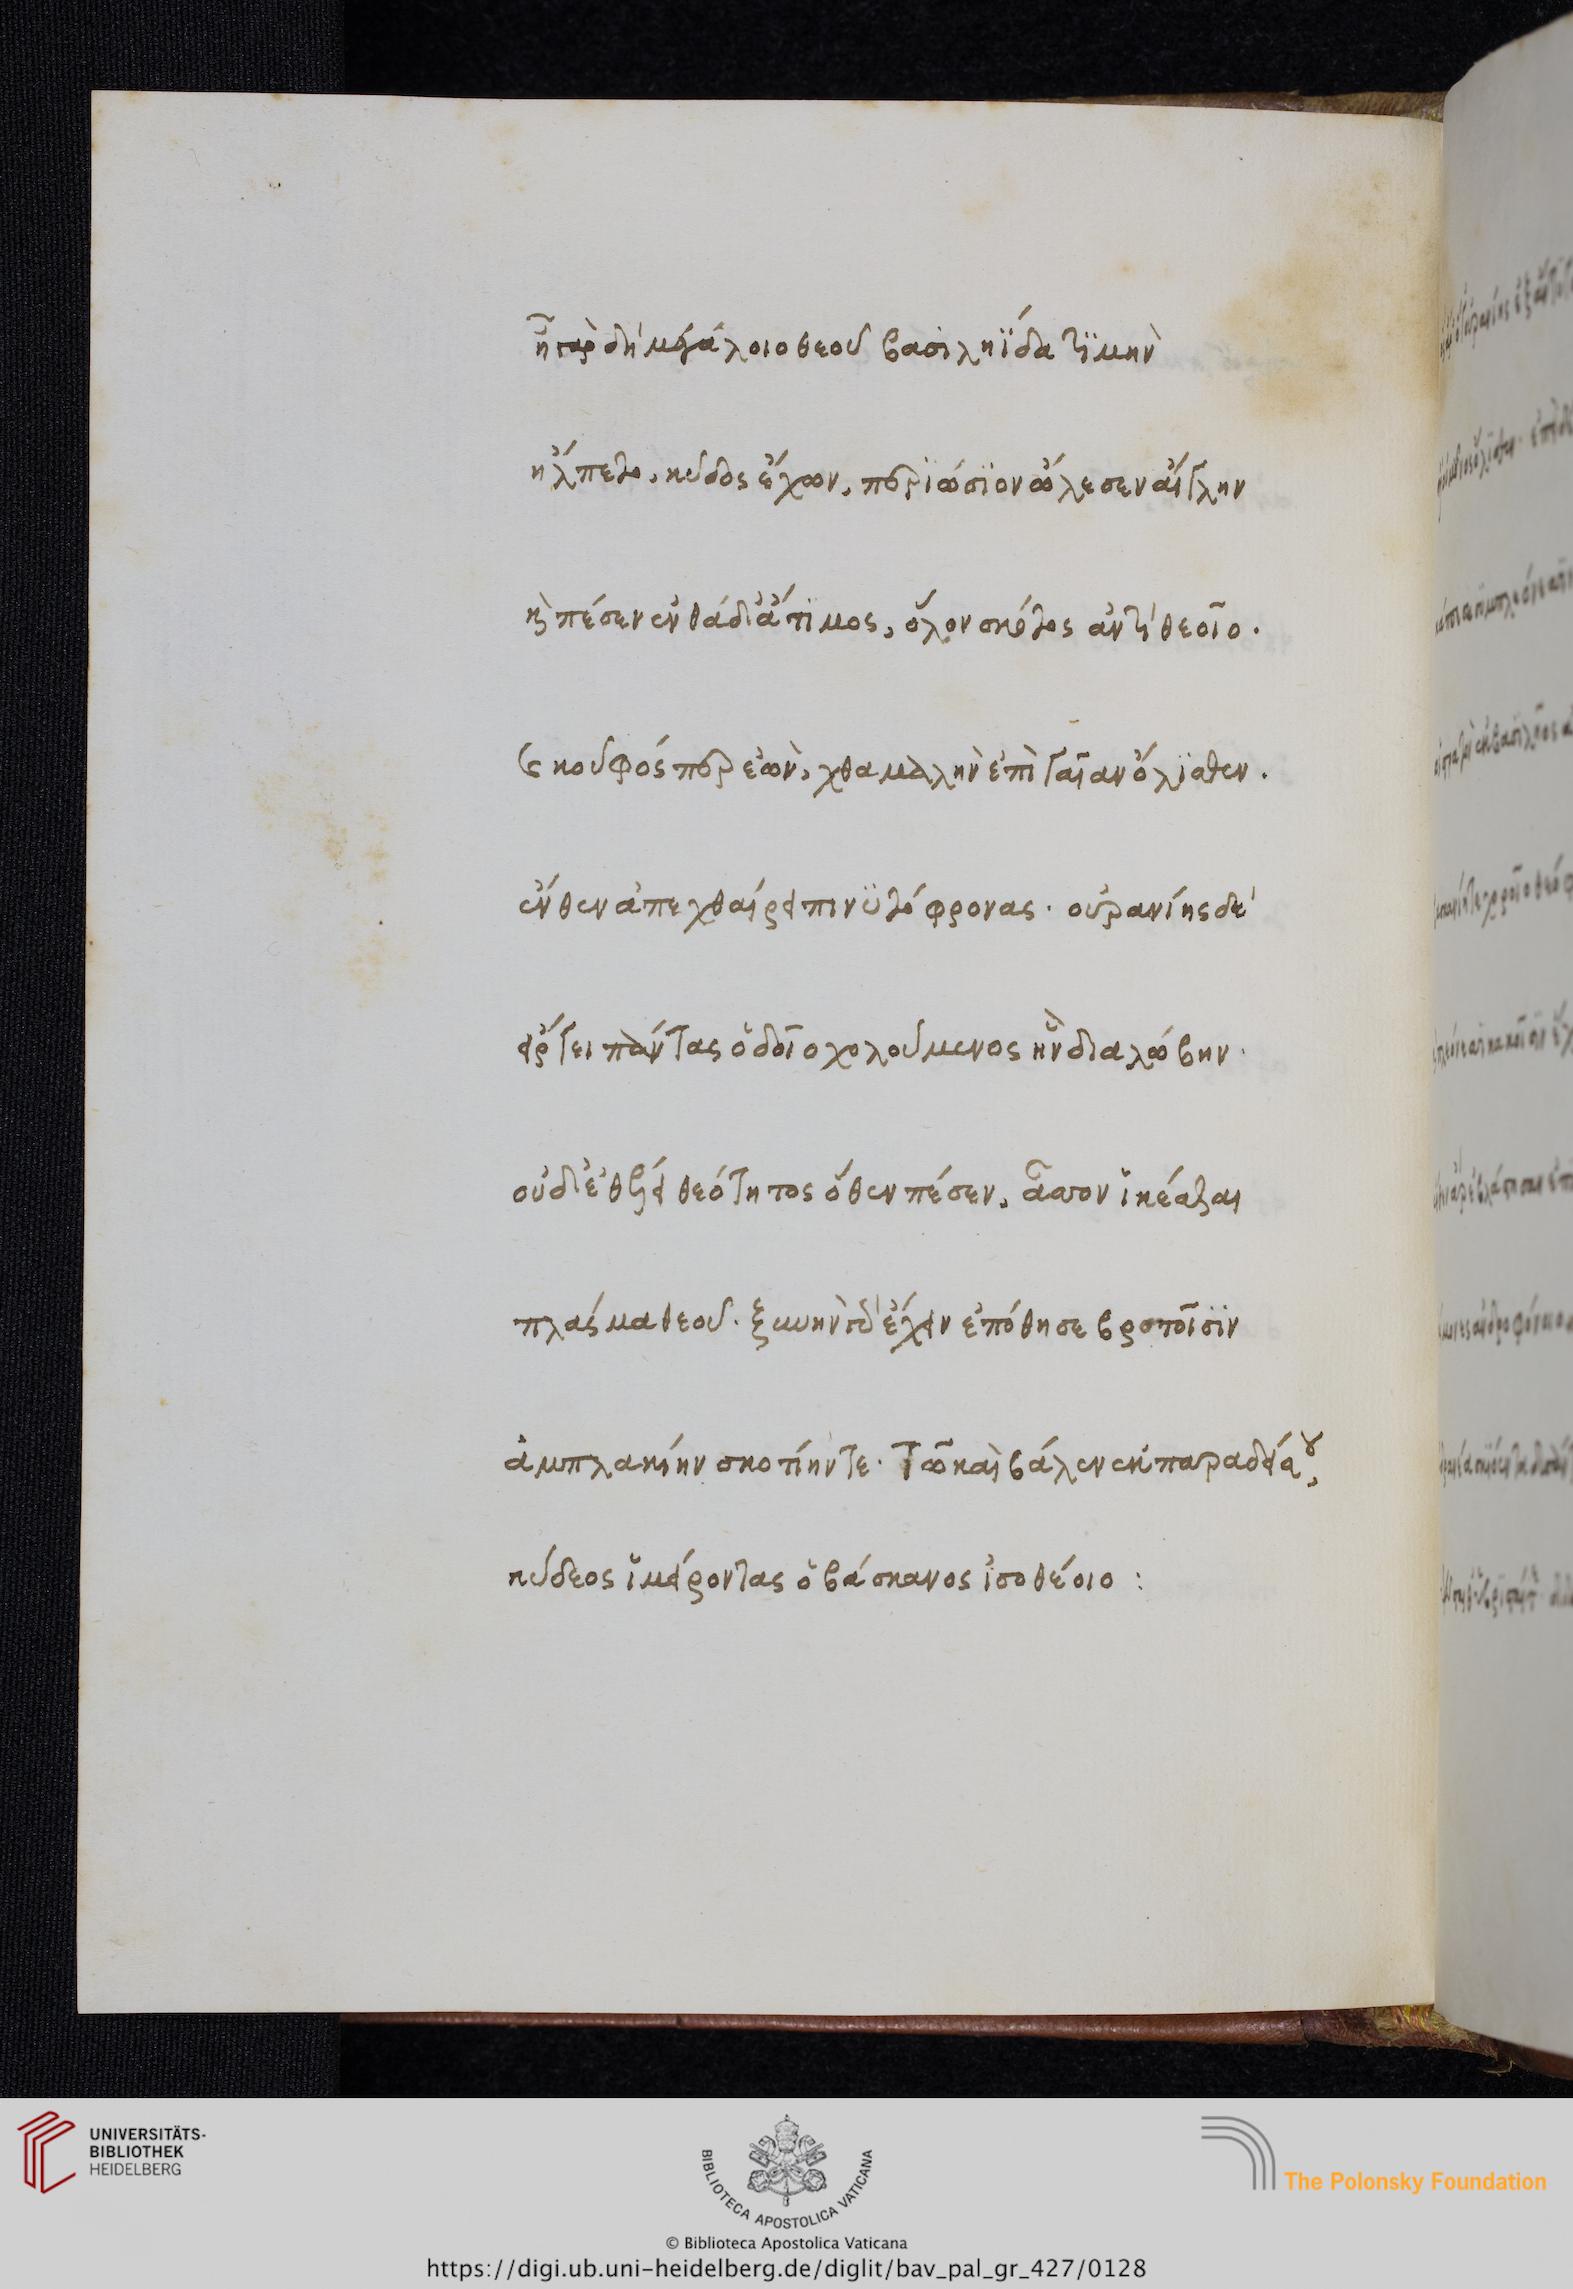 ἦ γὰρ δὴ μεγάλοιο θεοῦ βασιληΐδα τϊμὴν
ἤλπετο, κῦδος ἔχων, περιώσϊον ὤλεσεν αἴγλην
καὶ πέσεν ἐνθάδ' ἄτϊμος, ὅλον σκότος ἀντὶ θεοῖο.
κοῦφός περ ἐὼν, χθαμαλὴν ἐπὶ γαῖαν ὄλϊσθεν.
ἔνθεν ἀπεχθαίρει πινϋτόφρονας· οὐρανίης δὲ
εἴργει πάντας ὁδοῖο χολούμενος ἣν διὰ λώβην·
οὐδ' ἐθέλει θεότητος ὅθεν πέσεν, ἆσσον ἱκέσθαι
πλάσμα θεοῦ. ξυνὴν δ' ἔχειν ἐπόθησε βροτοῖσϊν
ἀμπλακίην σκοτίην τε. τῶ καὶ βάλεν ἐκ παραδείσου,
κύδεος ἱμείροντας ὁ βάσκανος ἰσοθέοιο :
UNIVERSITÄTS-
BIBLIOTHEK
HEIDELBERG
BIBLIOTECA APOSTOLICA VATICANA
The Polonsky Foundation
© Biblioteca Apostolica Vaticana
https://digi.ub.uni-heidelberg.de/diglit/bav_pal_gr_427/0128